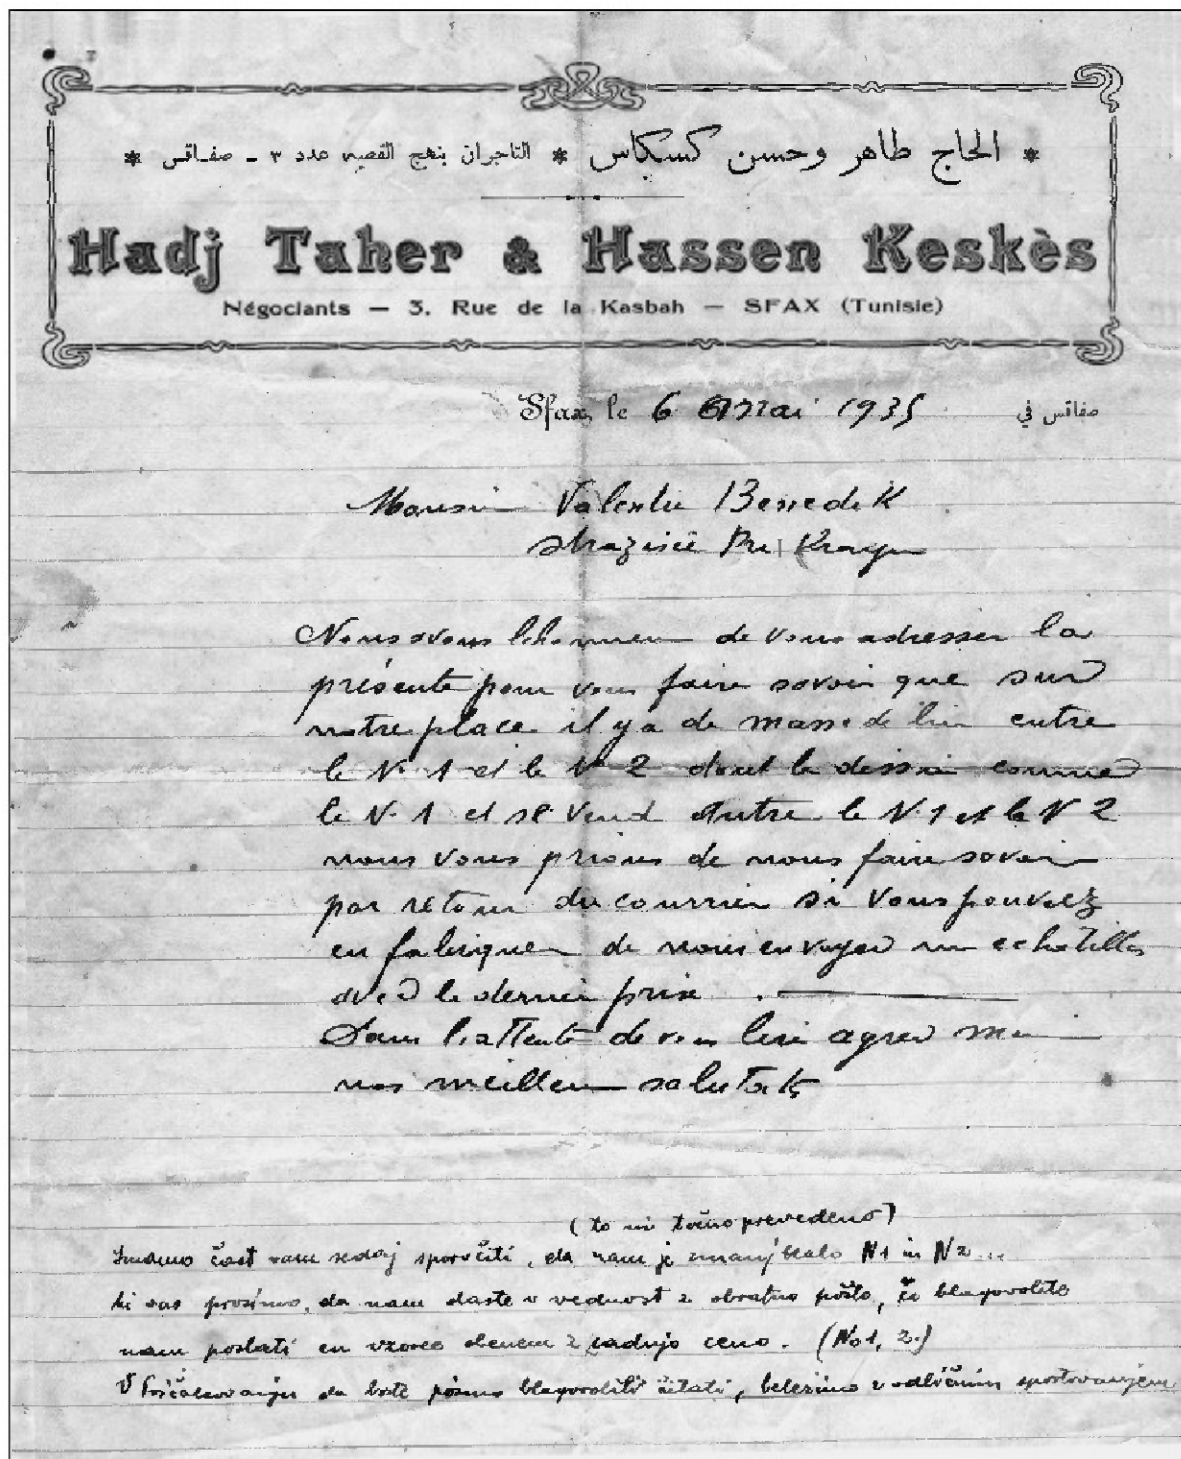 * الحاج طاهر وحسن كسكاس * التاجران بنهج القصبه عدد ٣ - صفاقس *
Hadj Taher & Hassen Keskès
Négociants — 3, Rue de la Kasbah — SFAX (Tunisie)
Sfax, le 6 Mai 1935 صفاقس في
Valentin Benedek
Nous avons l'honneur de vous adresser la
présente pour vous faire savoir que sur
notre place il y a de masse de entre
le N. 1 et le N. 2 dont le dessin comme
le N. 1 et se vend entre le N. 1 et le N 2
nous vous prions de nous faire savoir
par retour du courrier si vous pouvez
en fabriquer de nous envoyer un
avec le dernier prix . —
Dans l'attente de vous lire agreer
nos meilleurs
(to ni točno prevedeno)
Imamo čast vam sedaj sporočiti, da nam je N1 in N2...
ki vas prosimo, da nam daste v vednost z obratno pošto, če blagovolite
nam poslati en vzorec obenem z zadnjo ceno. (No 1, 2.)
V pričakovanju da boste pismo blagovolili čitati, beležimo z odličnim spoštovanjem